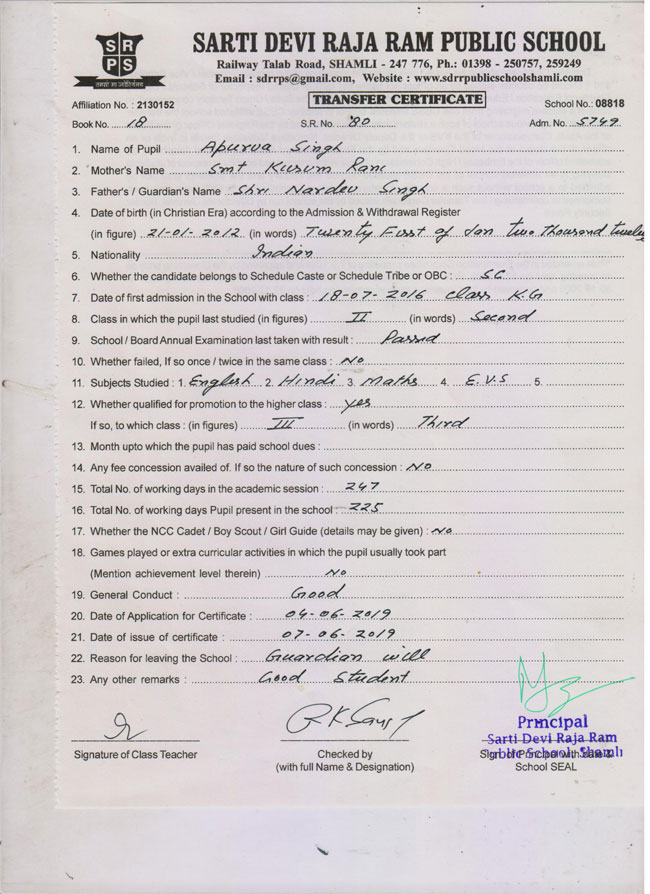 SR
PS
तमसो मा ज्योतिर्गमय
SARTI DEVI RAJA RAM PUBLIC SCHOOL
Railway Talab Road, SHAMLI - 247 776, Ph.: 01398 - 250757, 259249
Email : sdrrps@gmail.com, Website : www.sdrrpublicschoolshamli.com
Affiliation No. : 2130152 TRANSFER CERTIFICATE School No.: 08818
Book No. 18 S.R. No. 80 Adm. No. 5749
1. Name of Pupil Apurva Singh
2. Mother's Name Smt Kusum Rani
3. Father's / Guardian's Name Shri Nardev Singh
4. Date of birth (in Christian Era) according to the Admission & Withdrawal Register
(in figure) 21-01-2012 (in words) Twenty First of Jan two Thousand twelve
5. Nationality Indian
6. Whether the candidate belongs to Schedule Caste or Schedule Tribe or OBC : SC
7. Date of first admission in the School with class : 18-07-2016 class K.G
8. Class in which the pupil last studied (in figures) II (in words) Second
9. School / Board Annual Examination last taken with result : Passed
10. Whether failed, If so once / twice in the same class : No
11. Subjects Studied : 1. English 2. Hindi 3. Maths 4. E.V.S 5.
12. Whether qualified for promotion to the higher class : yes
If so, to which class : (in figures) III (in words) Third
13. Month upto which the pupil has paid school dues :
14. Any fee concession availed of. If so the nature of such concession : No
15. Total No. of working days in the academic session : 247
16. Total No. of working days Pupil present in the school : 225
17. Whether the NCC Cadet / Boy Scout / Girl Guide (details may be given) : No
18. Games played or extra curricular activities in which the pupil usually took part
(Mention achievement level therein) No
19. General Conduct : Good
20. Date of Application for Certificate : 04-06-2019
21. Date of issue of certificate : 07-06-2019
22. Reason for leaving the School : Guardian will
23. Any other remarks : Good Student
Principal
Sarti Devi Raja Ram
Public School, Shamli
Signature of Class Teacher Checked by Sign. of Principal with date &
(with full Name & Designation) School SEAL